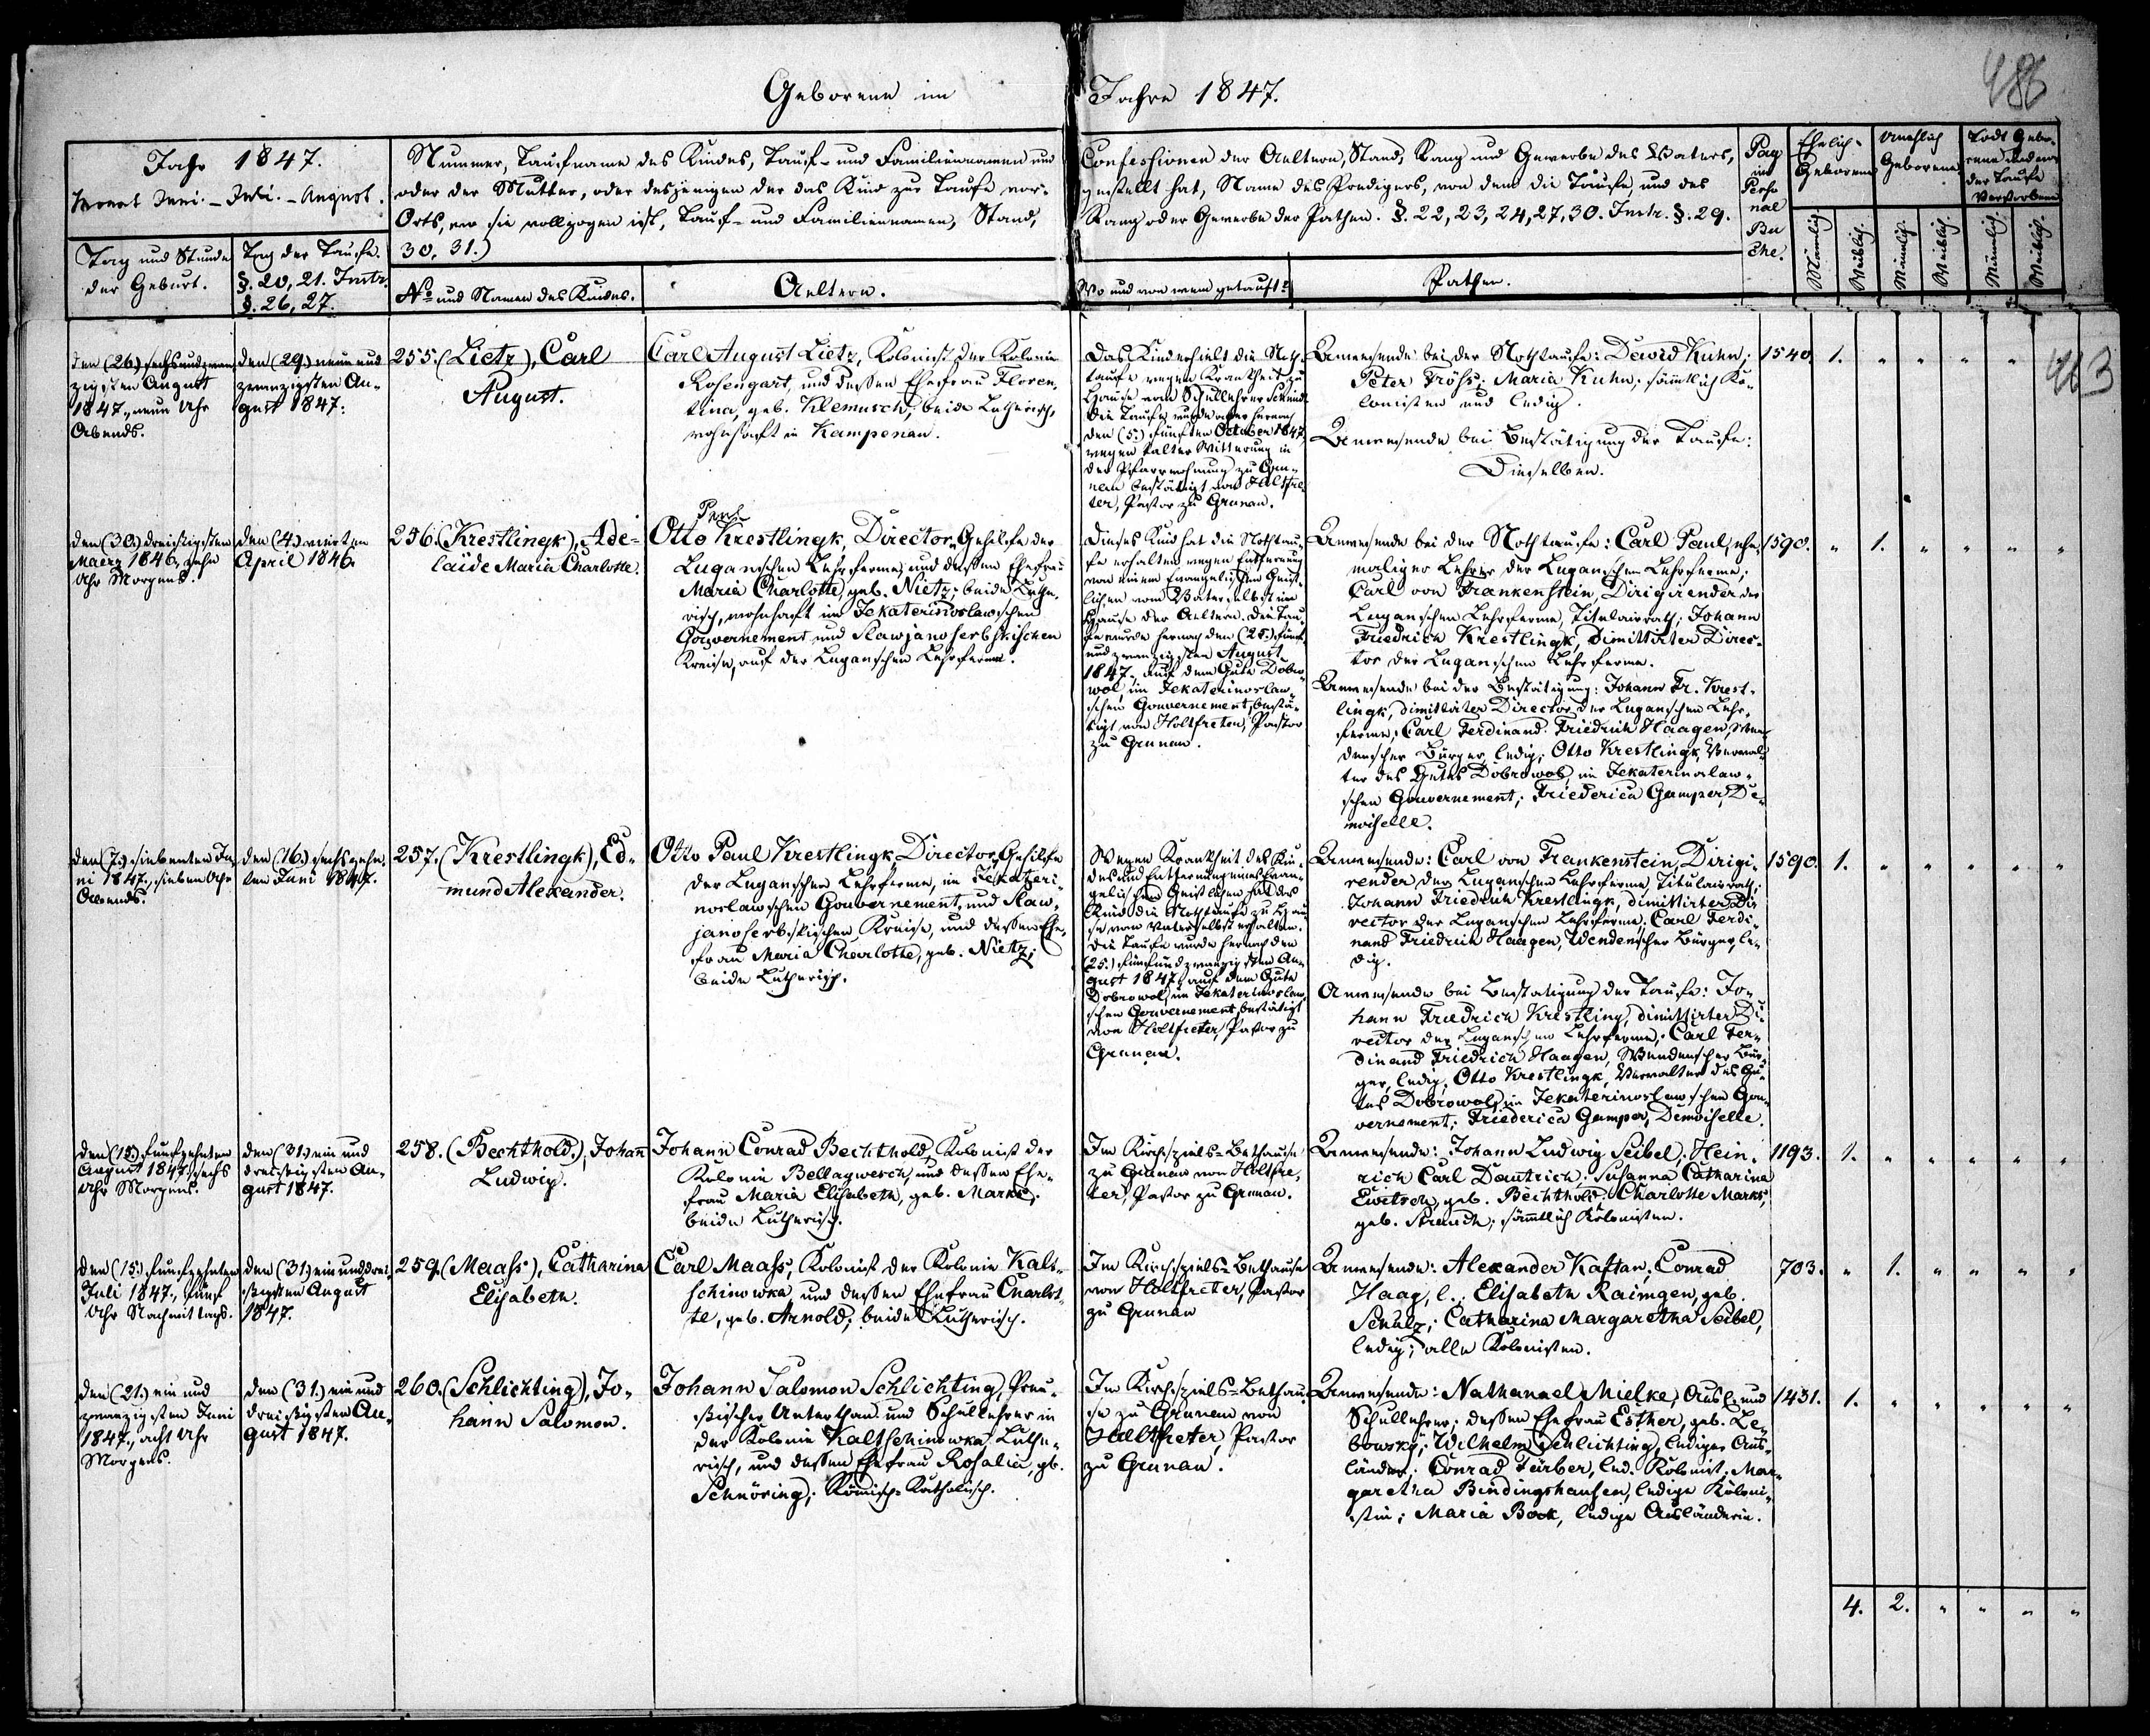 Geborene im Jahre 1847.
486
463
Jahr 1847.
Monat Juni. - Juli. - August.
Tag und Stunde
der Geburt.
Tag der Taufe.
§. 20, 21. Instr.
§. 26, 27.
Nummer, Taufname des Kindes, Tauf- und Familiennamen und
oder der Mutter, oder desjenigen der das Kind zur Taufe vor-
Orts, wo sie vollzogen ist, Tauf- und Familiennamen, Stand,
30, 31.)
No und Namen des Kindes.
Aeltern.
Confessionen der Aeltern, Stand, Rang und Gewerbe des Vaters,
gestellt hat, Name des Predigers, von dem die Taufe, und des
Rang oder Gewerbe der Pathen. §. 22, 23, 24, 27, 30. Instr. §. 29.
Wo und von wem getauft?
Pathen.
Pag
im
Perso
nal
Bu
che.
Ehelich-
Geborene
Unehlich
Geborene
Todt Gebo-
rene und vor
der Taufe
Verstorbene
Männlich
Weiblich.
Männlich.
Weiblich.
Männlich.
Weiblich.
den (26.) sechsundzwan-
zigsten August
1847., neun Uhr
Abends.
den (29.) neun und
zwanzigsten Au-
gust 1847.
255. (Lietz), Carl
August.
Carl August Lietz, Kolonist der Kolonie
Rosengart, und dessen Ehefrau Floren-
tina, geb. Klemusch; beide Lutherisch,
wohnhaft in Kampenau.
Das Kind erhielt die Noth-
taufe wegen Krankheit zu
Hause vom Schullehrer
die Taufe wurde aber hernach
den (5.) fünften October 1847.
wegen kalter Witterung in
der Pfarrwohnung zu Gru-
nau bestätigt von Holtfre-
ter, Pastor zu Grunau.
Anwesende bei der Nothtaufe: David Kuhn;
Peter Fröhs; Maria Kuhn; sämtlich Ko-
lonisten und ledig.
Anwesende bei Bestätigung der Taufe:
Dieselben.
1540. 1. " " " " "
den (30.) dreißigsten
Maerz 1846., zehn
Uhr Morgens.
den (4.) vierten
April 1846.
256. (Krestlingk), Ade-
laide Maria Charlotte.
Paul
Otto Krestlingk, Director-Gehilfe der
Luganschen Lehrferme, und dessen Ehefrau
Maria Charlotte, geb. Nietz; beide Luthe-
risch, wohnhaft im Jekaterinoslawschen
Gouvernement und Slawjanoserbskischen
Kreise, auf der Luganschen Lehrferme.
Dieses Kind hat die Nothtau-
fe erhalten wegen Entfernung
von einem Evangelischen Geist-
lichen vom Vater selbst im
Hause der Aeltern. Die Tau-
fe wurde hernach den (25.) fünf
und zwanzigsten August
1847., auf dem Gute Dobro-
wol, im Jekaterinoslaw-
schen Gouvernement, bestä-
tigt von Holtfreter, Pastor
zu Grunau.
Anwesende bei der Nothtaufe: Carl Paul, ehe-
maliger Lehrer der Luganschen Lehrferme;
Carl von Frankenstein, Dirigirender der
Luganschen Lehrferme, Titulairrath; Johann
Friedrich Krestlingk, dimittirter Direc-
tor der Luganschen Lehrferme.
Anwesende bei der Bestätigung: Johann Fr. Krest-
lingk, dimittirter Director der Luganschen Lehr-
ferme; Carl Ferdinand Friedrich Haagen, Wen-
denscher Bürger, ledig; Otto Krestlingk, Verwal-
ter des Gutes Dobrowol, im Jekaterinoslaw-
schen Gouvernement; Friederica Gamper, De-
moiselle.
1590. " 1. " " " "
den (7.) siebenten Ju-
ni 1847., sieben Uhr
Abends.
den (16.) sechszehn-
ten Juni 1847.
257. (Krestlingk), Ed-
mund Alexander.
Otto Paul Krestlingk, Director-Gehilfe
der Luganschen Lehrferme, im Jekateri-
noslawschen Gouvernement und Slaw-
janoserbskischen Kreise, und dessen Ehe-
frau Maria Charlotte, geb. Nietz;
beide Lutherisch.
Wegen Krankheit des Kin-
des und Entfernung eines Evan-
gelischen Geistlichen hat das
Kind die Nothtaufe zu Hau-
se vom Vater selbst erhalten.
Die Taufe wurde hernach den
(25.) fünfundzwanzigsten Au-
gust 1847., auf dem Gute
Dobrowol, im Jekaterinoslaw-
schen Gouvernement, bestätigt
von Holtfreter, Pastor zu
Grunau.
Anwesende: Carl von Frankenstein, Dirigi-
render der Luganschen Lehrferme, Titulairrath;
Johann Friedrich Krestlingk, dimittirter Di-
rector der Luganschen Lehrferme; Carl Ferdi-
nand Friedrich Haagen, Wendenscher Bürger, le-
dig.
Anwesende bei Bestätigung der Taufe: Jo-
hann Friedrich Krestling, dimittirter Di-
rector der Luganschen Lehrferme; Carl Fer-
dinand Friedrich Haagen, Wendenscher Bür-
ger, ledig; Otto Krestlingk, Verwalter des Gu-
tes Dobrowol, im Jekaterinoslawschen Gou-
vernement; Friederica Gamper, Demoiselle.
1590. 1. " " " " "
den (15.) funfzehnten
August 1847., sechs
Uhr Morgens.
den (31.) ein und
dreißigsten Au-
gust 1847.
258. (Bechthold), Johann
Ludwig.
Johann Conrad Bechthold, Kolonist der
Kolonie Bellagwesch, und dessen Ehe-
frau Maria Elisabeth, geb. Marks;
beide Lutherisch.
Im Kirchspiels-Bethause
zu Grunau von Holtfre-
ter, Pastor zu Grunau.
Anwesende: Johann Ludwig Seibel; Hein-
rich Carl Dautrich; Susanna Catharina
geb. Bechthold; Charlotte Marks,
geb. Strauch; sämtlich Kolonisten.
1193. 1. " " " " "
den (15.) funfzehnten
Juli 1847., fünf
Uhr Nachmittags.
den (31.) ein und drei-
ßigsten August
1847.
259. (Maass), Catharina
Elisabeth.
Carl Maass, Kolonist der Kolonie Kalt-
schinowka, und dessen Ehefrau Charlot-
te, geb. Arnold; beide Lutherisch.
Im Kirchspiels-Bethause
von Holtfreter, Pastor
zu Grunau
Anwesende: Alexander Kaftan; Conrad
Haag, l.; Elisabeth Raimgen, geb.
Schulz; Catharina Margaretha Seibel,
ledig; alle Kolonisten.
703. " 1. " " " "
den (21.) ein und
zwanzigsten Juni
1847., acht Uhr
Morgens.
den (31.) ein und
dreißigsten Au-
gust 1847.
260. (Schlichting), Jo-
hann Salomon.
Johann Salomon Schlichting, Preu-
ßischer Unterthan und Schullehrer in
der Kolonie Kaltschinowka, Luthe-
risch, und dessen Ehefrau Rosalia, gb.
Schnöring; Römisch-Katholisch.
Im Kirchspiels-Bethau-
se zu Grunau von
Holtfreter, Pastor
zu Grunau.
Anwesende: Nathanael Mielke, Ausl. und
Schullehrer; dessen Ehefrau Esther, geb. Le-
bowsky; Wilhelm Schlichting, lediger Aus-
länder; Conrad Färber, led. Kolonist; Mar-
garetha Bindingshausen, ledige Koloni-
stin; Maria Bock, ledige Ausländerin.
1431. 1. " " " " "
4. 2. " " " "